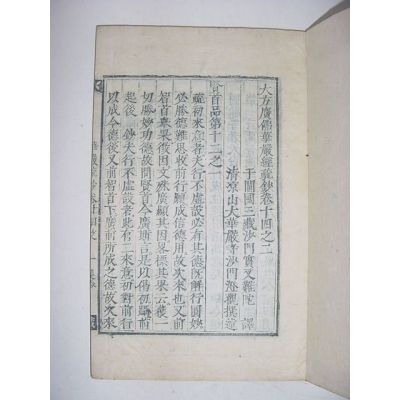 大方廣佛華嚴經疏鈔卷十四之二
于闐國三藏沙門實叉難陀 譯
清涼山大華嚴寺沙門澄觀撰述
首品第十二之一
疏初來意者夫行不虛設必有其德旣解行圓妙
必勝德難思收前行願成信德用故次來也又前
智首舉果徵因文殊廣顯其因略標其果云獲一
切勝妙功德故問賢首令廣斯言是以偈初躡前
起後 鈔夫行不虛設者此有二來意初對前行
以成今德後又前智首下廣前所成之德故次來